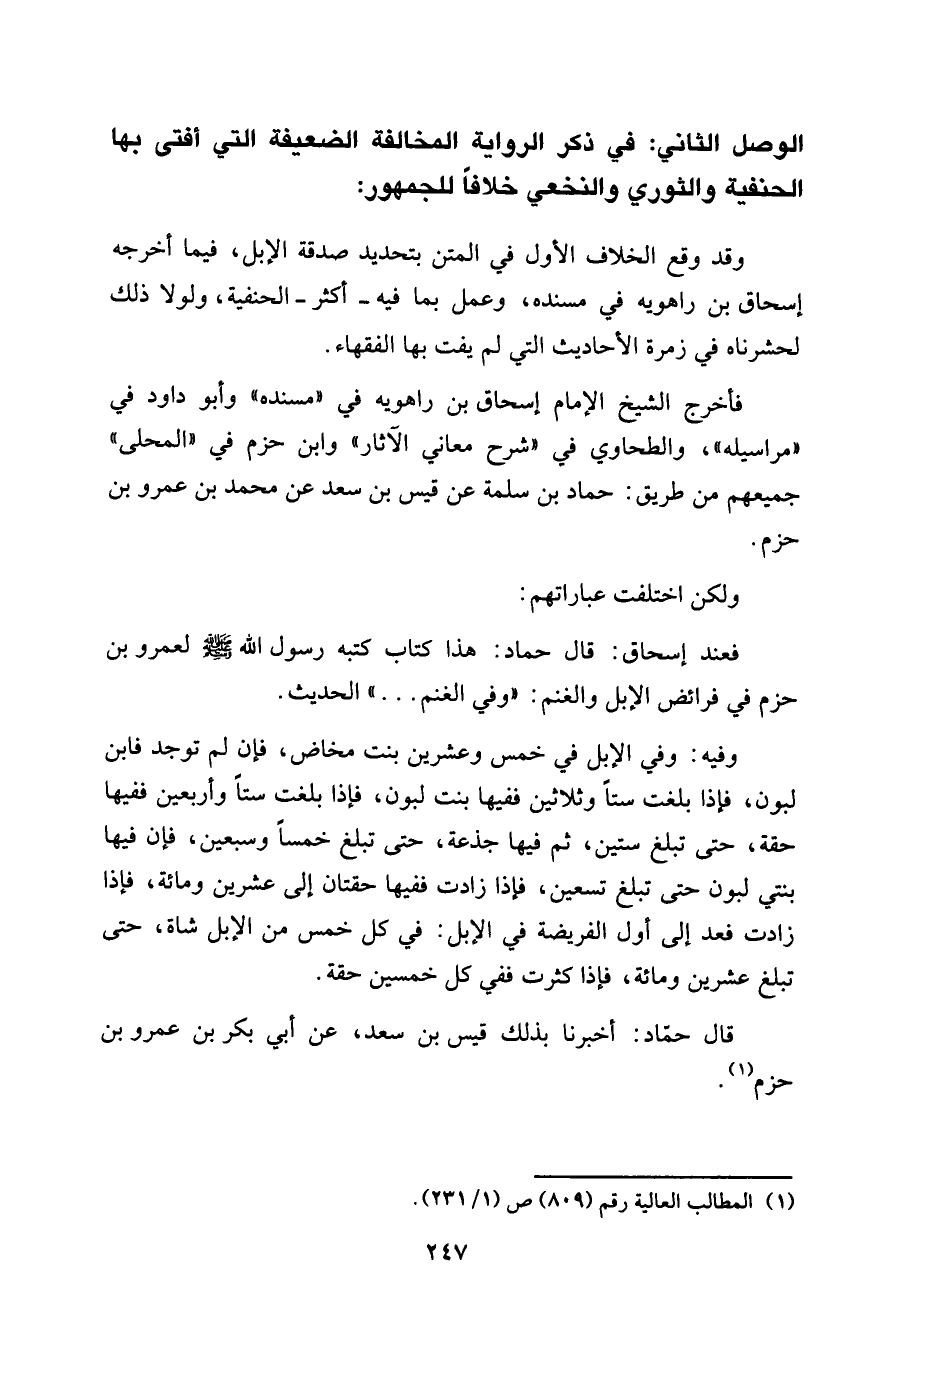 الوصل الثاني: في ذكر الرواية المخالفة الضعيفة التي أفتى بها
الحنفية والثوري والنخعي خلافاً للجمهور:
وقد وقع الخلاف الأول في المتن بتحديد صدقة الإبل، فيما أخرجه
إسحاق بن راهويه في مسنده، وعمل بما فيه ـ أكثر ـ الحنفية، ولولا ذلك
لحشرناه في زمرة الأحاديث التي لم يفت بها الفقهاء.
فأخرج الشيخ الإمام إسحاق بن راهويه في «مسنده» وأبو داود في
«مراسيله»، والطحاوي في «شرح معاني الآثار» وابن حزم في «المحلى»
جميعهم من طريق: حماد بن سلمة عن قيس بن سعد عن محمد بن عمرو بن
حزم.
ولكن اختلفت عباراتهم:
فعند إسحاق: قال حماد: هذا كتاب كتبه رسول الله ﷺ لعمرو بن
حزم في فرائض الإبل والغنم: «وفي الغنم...» الحديث.
وفيه: وفي الإبل في خمس وعشرين بنت مخاض، فإن لم توجد فابن
لبون، فإذا بلغت ستاً وثلاثين ففيها بنت لبون، فإذا بلغت ستاً وأربعين ففيها
حقة، حتى تبلغ ستين، ثم فيها جذعة، حتى تبلغ خمساً وسبعين، فإن فيها
بنتي لبون حتى تبلغ تسعين، فإذا زادت ففيها حقتان إلى عشرين ومائة، فإذا
زادت فعد إلى أول الفريضة في الإبل: في كل خمس من الإبل شاة، حتى
تبلغ عشرين ومائة، فإذا كثرت ففي كل خمسين حقة.
قال حمّاد: أخبرنا بذلك قيس بن سعد، عن أبي بكر بن عمرو بن
حزم(١).
(١) المطالب العالية رقم (٨٠٩) ص (١/ ٢٣١).
٢٤٧